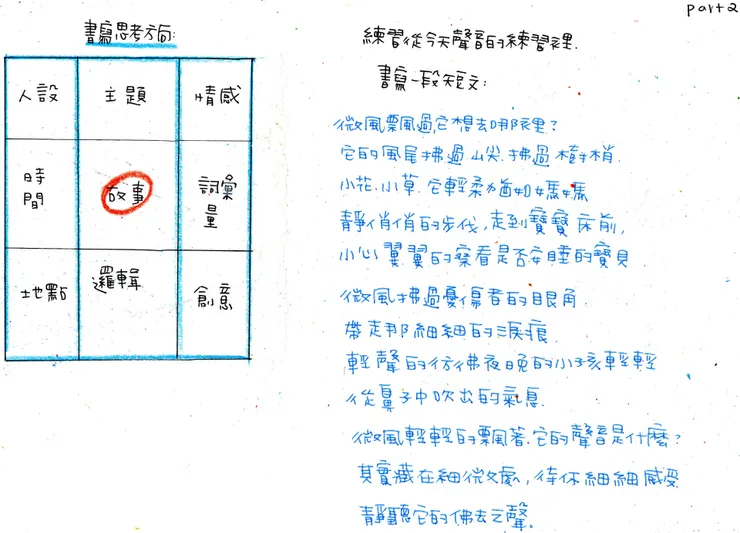 part 2
書寫思考方向:
人設 主題 情感
時間 故事 詞彙量
地點 邏輯 創意
練習從今天聲音的練習裡.
書寫一段短文:
微風飄過它想去哪裡?
它的風尾拂過山尖.拂過樹梢.
小花.小草.它輕柔猶如媽媽
靜悄悄的步伐,走到寶寶床前,
小心翼翼的察看是否安睡的寶貝
微風拂過憂傷者的眼角.
帶走那細細的淚痕
輕聲的彷彿夜晚的小孩輕輕
從鼻子中吹出的氣息.
微風輕輕的飄著.它的聲音是什麼?
其實藏在細微處,待你細細感受
靜聽它的佛去之聲。